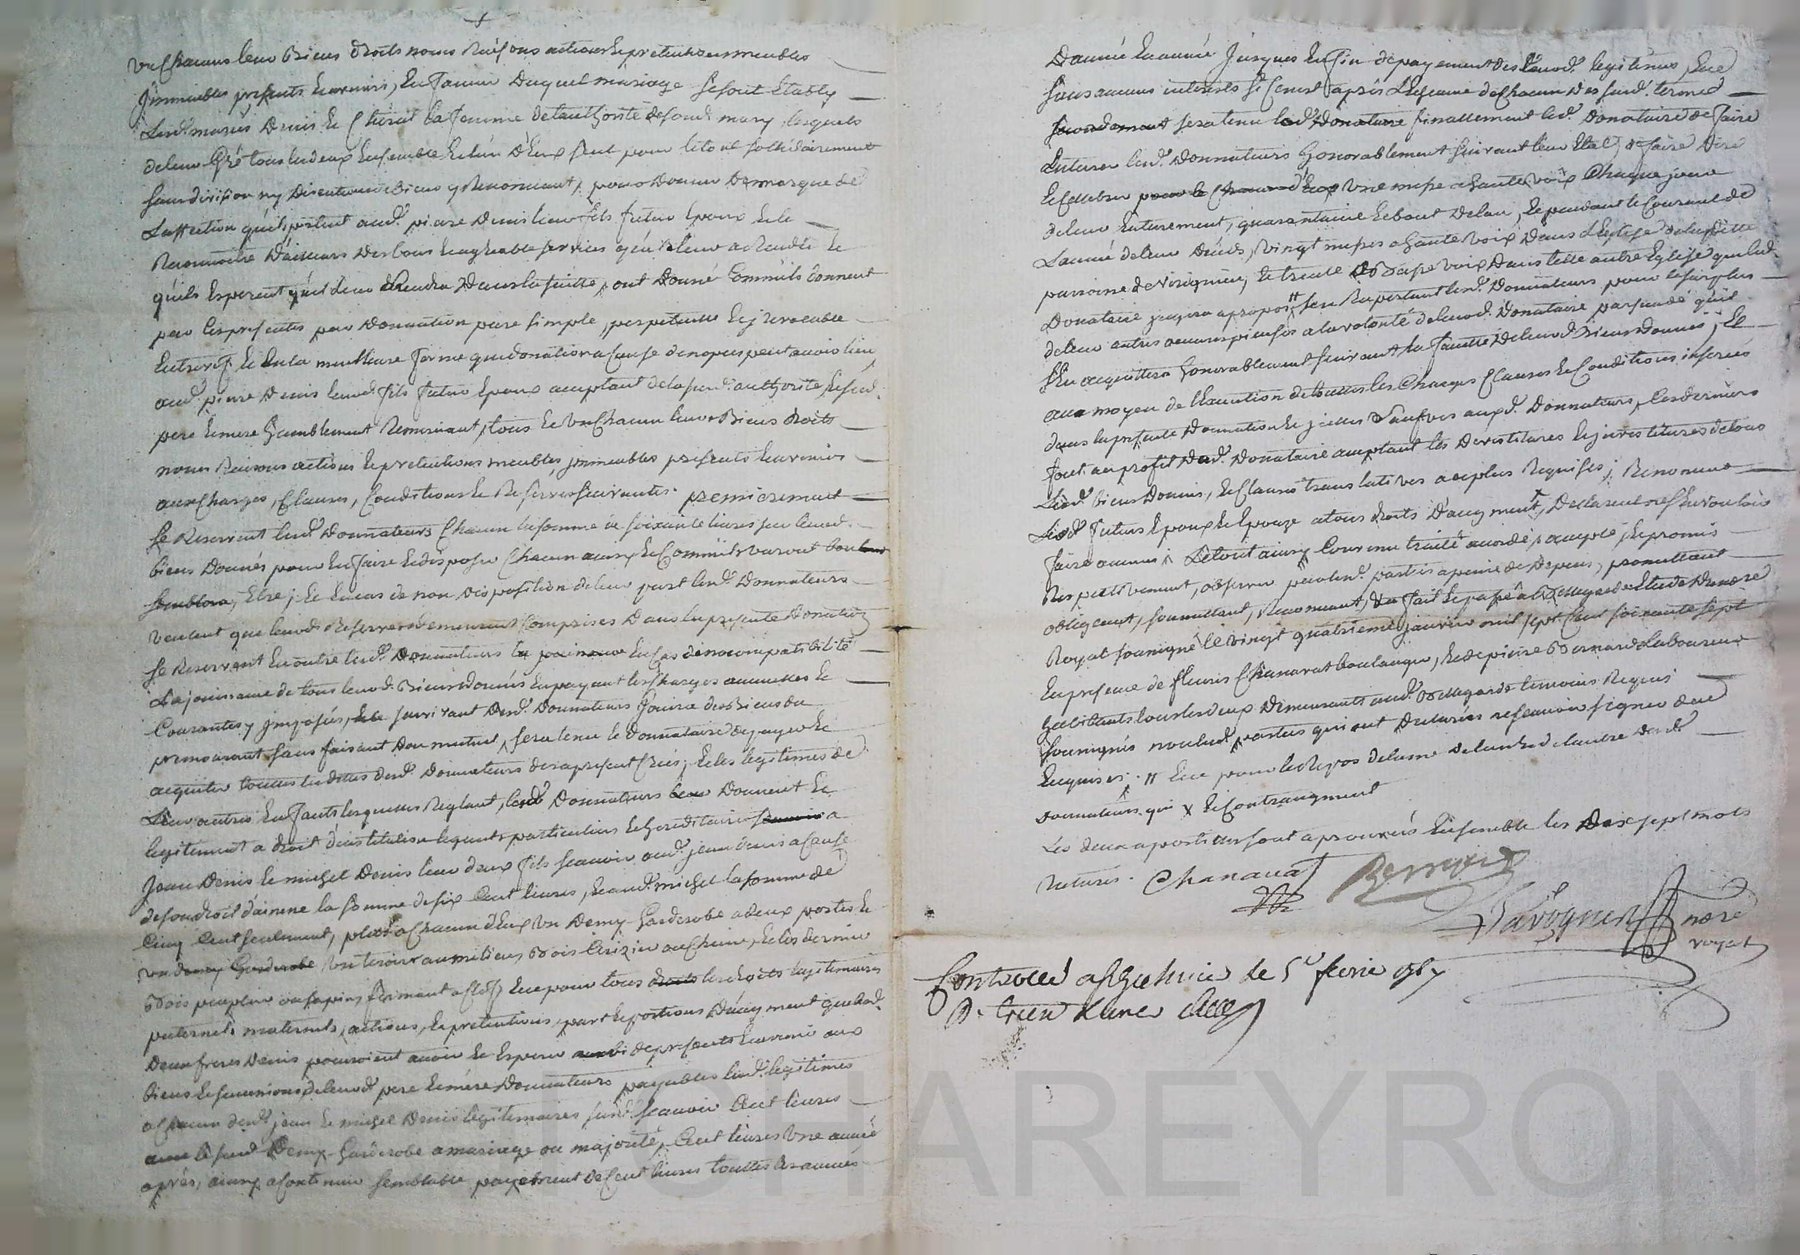 un chacuns leur Biens droits noms Raisons actions et pretentions meubles
Jmmeubles presents et avenir, En faveur Duquel mariage se sont Etably
Lesd. mariés Denis et la femme de l'authorité desond. mary, lesquels
de leur Gré tous les deux Ensemble et l'un d'Eux seul pour le tout sollidairement
sans division ny Discution de Biens y Renonceant, pour Donner Des marque de
L'affection qu'ils portent aud. piere Denis leur fils futur Epoux et le
Reconnoitre D'ailleurs Des bons et agreable services qu'il leur a Rendu et
qu'ils Esperent qu'il leur Rendra Dans la suitte, ont Donné Comm'ils donnent
par les presentes par Donnation pure simple, perpetuelle et jrrevocable
Entrevifs et En la meilleure forme que donnation a Cause de nopces peut avoir lieu
aud. piere Denis leurd. fils futur Epoux acceptant de la susd. authorité, sesd.
pere et mere humblement Remerciant, tous et un Chacun leurs Biens droits
noms Raisons actions et pretentions meubles, jmmeubles presents et avenirs
aux Charges, Clauses, Conditions et Reserves suivantes. premierement
se Reservent lesd. Donnateurs Chacun la somme de soixante livres sur leursd.
biens Donnés pour En faire et disposer Chacun ainsy et Comm'ils verront bon leur
semblera, Etre; Et En cas de non disposition de leur part lesd. Donnateurs
veulent que leursd. Reserves Demeurent Comprises Dans la presente Donnation
se Reservent En outre lesd. Donnateurs En Cas d'incompatibilité
La jouissance de tous leursd. Biens donnés En payant les Charges annuelles et
Courantes y jmposés, le survivant Desd. Donnateurs Jouira des Biens du
premourant sans faisant Don mutuel, sera tenu le Donnataire de payer et
acquiter touttes les dettes desd. Donnateurs des apresent Créés; Et les legitimes de
Leur autres Enfants lesquelles Reglant, lesd. Donnateurs Donnent et
legitiment a droit d'institution leguent particuliere et hereditaire a
Jean Denis et michel Denis leur deux fils scavoir aud. jean Denis a Cause
de son droit d'ainesse la somme de six Cent livres, et aud. michel la somme de
Cinq Cent seulement, plus a Chacun d'Eux Un Demy Garderobe a deux portes et
un tiroir au milieu Bois Cerizier ou Chene, et les derrier
Bois peuplier ou sapin fermant a Clefs Et ce pour tous les droits legitimaires
paternels maternels, actions, et pretentions, part et portions D'augment que lesd.
Deux freres Denis pouroient avoir et Esperer de presents et avenir aux
biens et successions de leursd. pere et mere Donnateurs payables lesd. legitimes
a Chacun desd. jean et michel Denis legitimaires susd. scavoir Cent livres
avec le susd. Demy Garderobe a mariage ou majorité, Cent livres Une année
aprés, ainsy a Continuer semblable payement de Cent livres touttes les années
D'année En année Jusques En fin de payement des susd. legitimes, Et ce
sans aucuns interests si ce n'est aprés L'Echeance de Chacun Des susd. termes
sera tenu finallement led. Donnataire de faire
Enterrer lesd. Donnateurs honorablement suivant leur Etat, de faire Dire
et Celebrer Une messe a haute voix Chaque jour
de leur Enterement, quarantaine et bout De l'an, Et pendant le Courant de
L'année de leur Décés, vingt messes a haute voix Dans L'Eglise de lad.
paroisse de Virigneux, Et trente a Basse voix Dans telle autre Eglise que led.
Donnataire jugera apropos s'en Raportant lesd. Donnateurs pour le surplus
de leur autres oeuvres pieuses a la volonté de leurd. Donnataire persuadé qu'il
s'En acquittera honorablement suivant la faculté de leursd. Biens donnés; Et
au moyen de l'Execution de touttes les Charges Clauses et Conditions inserées
dans la presente Donnation et jcelles sauves auxd. Donnateurs, Ces derniers
font au profit dud. Donnataire acceptant les Devestitures et jnvestitures de tous
Lesd. Biens Donnés, Et Clauses translatives au plus Requises; Renonceant
Lesd. futurs Epoux et Epouze a tous droits D'augment, Declarant n'En vouloir
faire aucuns Letout ainsy Convenu traité acordé, accepté, et promis
Respectivement, observer par lesd. parties a peine de Depens, promettant
obligeant, soumettant, Renonceant, fait et passé a Bellegarde Etude du no.re
Royal soussigné le vingt quatrieme janvier mil sept Cent soixante sept
En presence de fleuris Chanavat boulanger, et de pierre Bernard Laboureur
habitants tous les deux Demeurants aud. Bellegarde temoins Requis
soussignés non lesd. parties qui ont Declarées ne scavoir signer de ce
Enquises. // Et ce pour le Repos de l'ame de l'un et de l'autre Desd.
Donnateurs, qui X Et Contrangment
Les deux apostilles sont aprouvées Ensemble les Dix sept mots
raturés. Chanavat Bernard
Davognier no.re
royal
Controllé a le 5e fevrie 1767